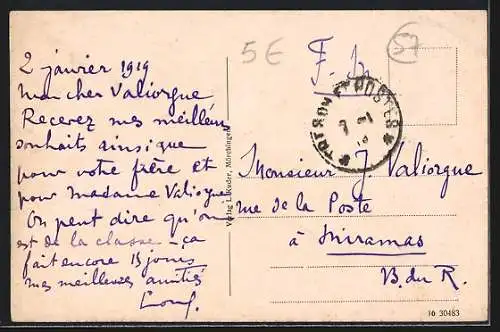 2 janvier 1919
Mon cher Valiorgue
Recevez mes meilleurs
souhaits ainsi que
pour votre frère et
pour Madame Valiorgue
On peut dire qu'on
est de la classe - ça
fait encore 15 jours
mes meilleures amitiés
5€
F. M
57
TRESOR ET POSTES
Verlag L. Kuder, Mörchingen
Monsieur J. Valiorgue
rue de la Poste
à Miramas
B. du R.
10 30483